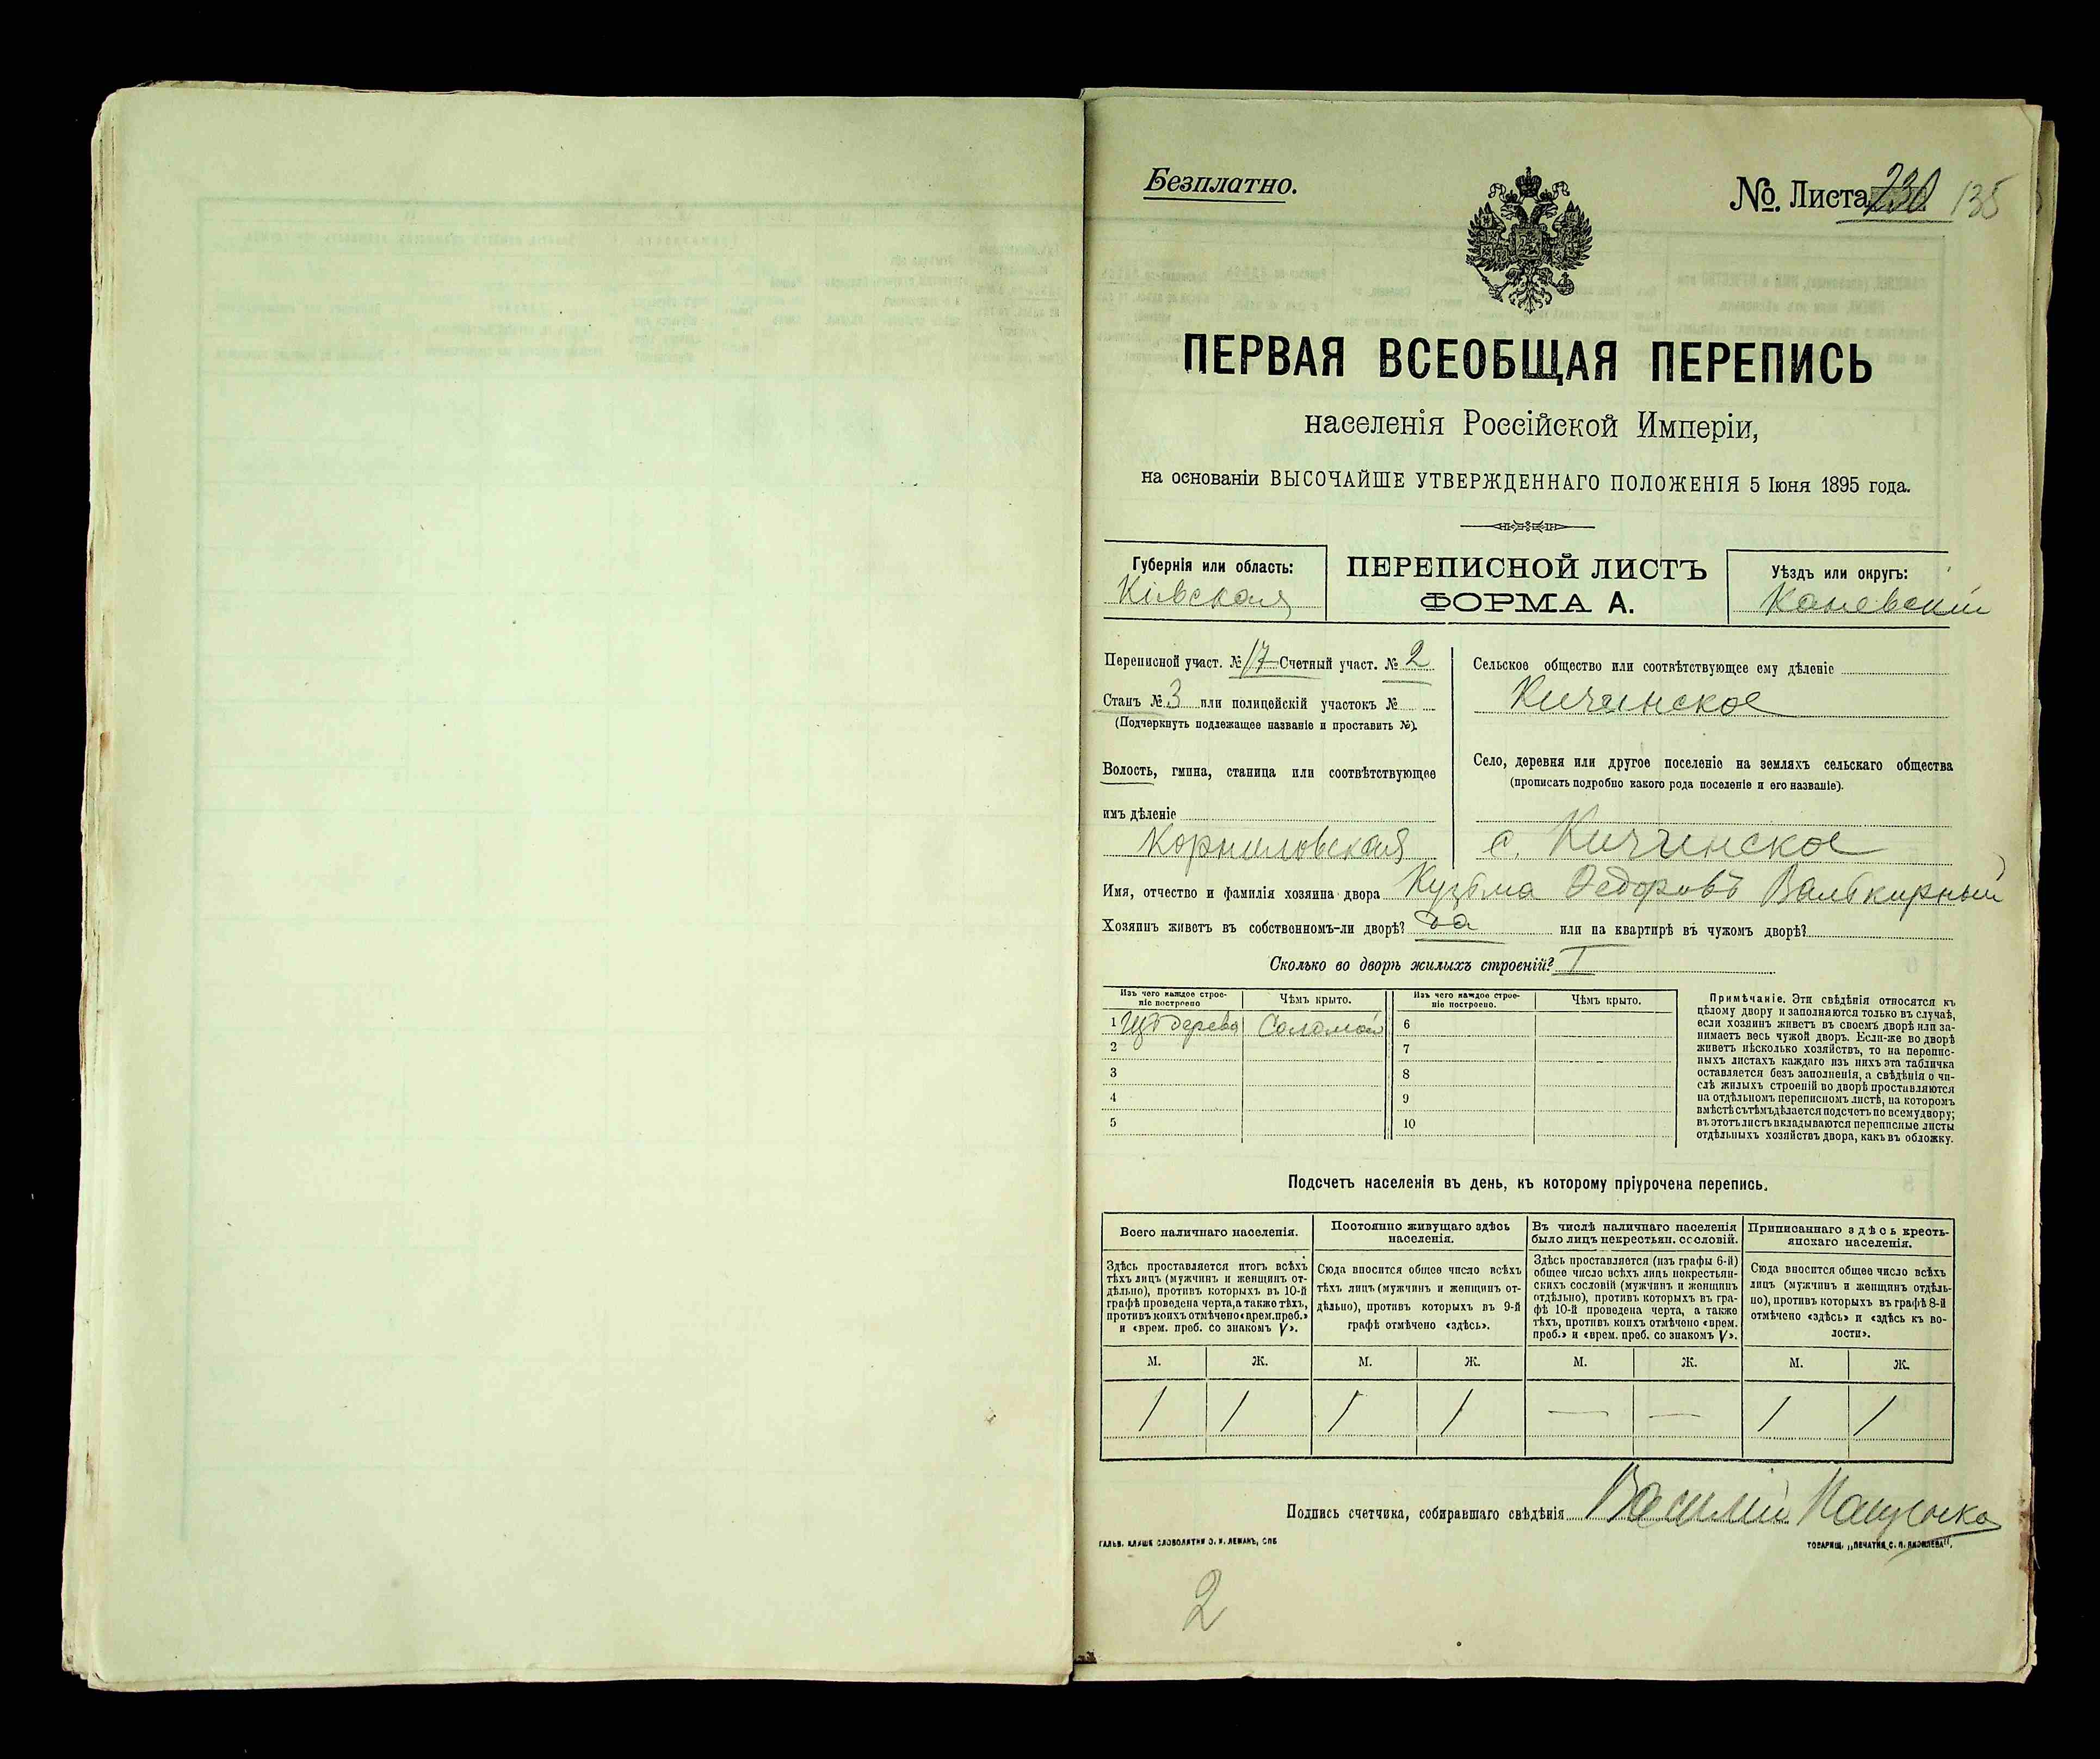 Безплатно.
№. Листа 230 135
ПЕРВАЯ ВСЕОБЩАЯ ПЕРЕПИСЬ
населенія Россійской Имперіи,
на основаніи ВЫСОЧАЙШЕ УТВЕРЖДЕННАГО ПОЛОЖЕНІЯ 5 Іюня 1895 года.
Губернія или область:
Кіевская
ПЕРЕПИСНОЙ ЛИСТЪ
ФОРМА А.
Уѣздъ или округъ:
Каневскій
Переписной участ. № 17 Счетный участ. № 2
Станъ № 3 или полицейскій участокъ №
(Подчеркнуть подлежащее названіе и проставить №).
Волость, гмина, станица или соотвѣтствующее
имъ дѣленіе
Корниловская
Сельское общество или соотвѣтствующее ему дѣленіе
Кичинское
Село, деревня или другое поселеніе на земляхъ сельскаго общества
(прописать подробно какого рода поселеніе и его названіе).
с. Кичинское
Имя, отчество и фамилія хозяина двора Кузьма Федоровъ
Хозяинъ живетъ въ собственномъ-ли дворѣ? да или на квартирѣ въ чужомъ дворѣ?
Сколько во дворѣ жилыхъ строеній? I
Изъ чего каждое строе-
ніе построено
Чѣмъ крыто.
Изъ чего каждое строе-
ніе построено.
Чѣмъ крыто.
1 Изъ дерева Соломой 6
2 7
3 8
4 9
5 10
Примѣчаніе. Эти свѣдѣнія относятся къ
цѣлому двору и заполняются только въ случаѣ,
если хозяинъ живетъ въ своемъ дворѣ или за-
нимаетъ весь чужой дворъ. Если-же во дворѣ
живетъ нѣсколько хозяйствъ, то на перепис-
ныхъ листахъ каждаго изъ нихъ эта табличка
оставляется безъ заполненія, а свѣдѣнія о чи-
слѣ жилыхъ строеній во дворѣ проставляются
на отдѣльномъ переписномъ листѣ, на которомъ
вмѣстѣ съ тѣмъ дѣлается подсчетъ по всему двору;
въ этотъ листъ вкладываются переписные листы
отдѣльныхъ хозяйствъ двора, какъ въ обложку.
Подсчетъ населенія въ день, къ которому пріурочена перепись.
Всего наличнаго населенія.
Здѣсь проставляется итогъ всѣхъ
тѣхъ лицъ (мужчинъ и женщинъ от-
дѣльно), противъ которыхъ въ 10-й
графѣ проведена черта, а также тѣхъ,
противъ коихъ отмѣчено «врем. преб.»
и «врем. преб. со знакомъ V».
Постоянно живущаго здѣсь
населенія.
Сюда вносится общее число всѣхъ
тѣхъ лицъ (мужчинъ и женщинъ от-
дѣльно), противъ которыхъ въ 9-й
графѣ отмѣчено «здѣсь».
Въ числѣ наличнаго населенія
было лицъ некрестьян. сословій.
Здѣсь проставляется (изъ графы 6-й)
общее число всѣхъ лицъ некрестьян-
скихъ сословій (мужчинъ и женщинъ
отдѣльно), противъ которыхъ въ гра-
фѣ 10-й проведена черта, а также
тѣхъ, противъ коихъ отмѣчено «врем.
преб.» и «врем. преб. со знакомъ V».
Приписаннаго здѣсь кресть-
янскаго населенія.
Сюда вносится общее число всѣхъ
лицъ (мужчинъ и женщинъ отдѣль-
но), противъ которыхъ въ графѣ 8-й
отмѣчено «здѣсь» и «здѣсь къ во-
лости».
М. Ж. М. Ж. М. Ж. М. Ж.
1 1 1 1 — — 1 1
Подпись счетчика, собиравшаго свѣдѣнія Василій
ГАЛЬВ. КЛИШЕ СЛОВОЛИТНИ О. И. ЛЕМАНЪ, СПБ
ТОВАРИЩ. „ПЕЧАТНЯ С. П. ЯКОВЛЕВА".
2